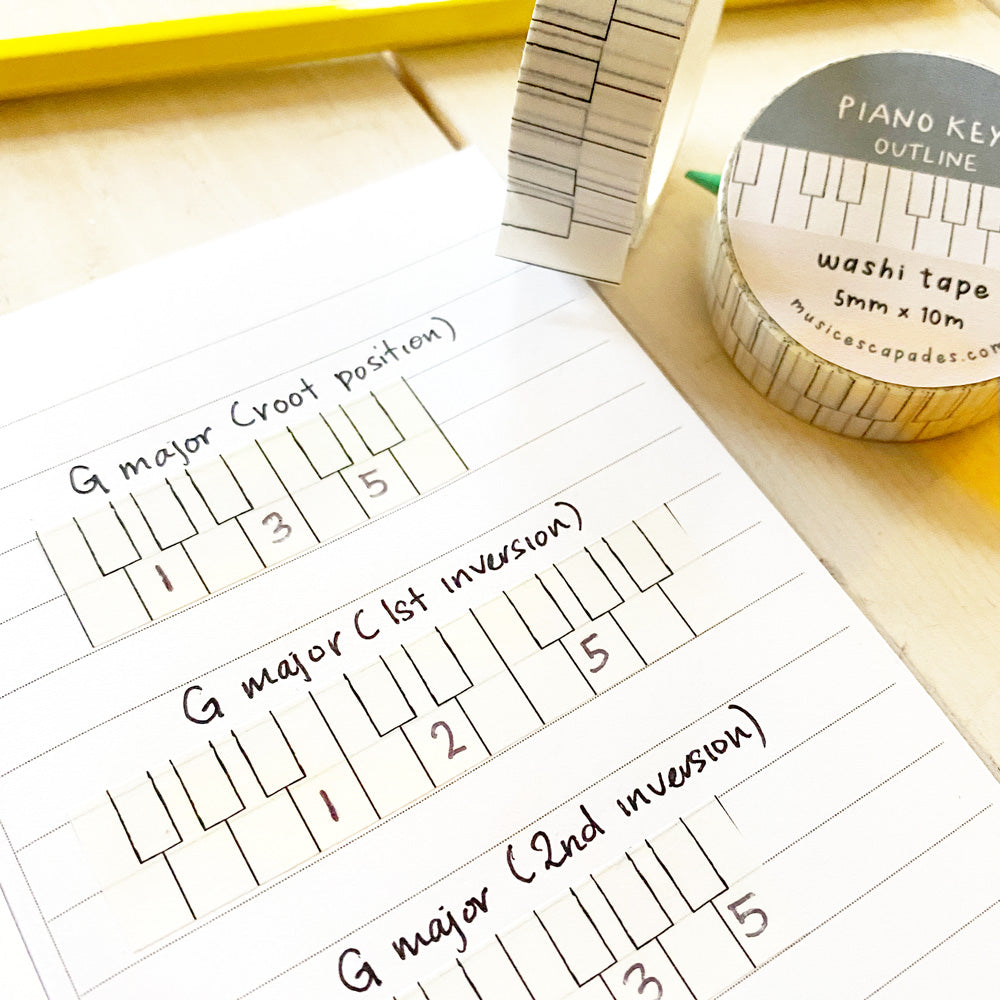 PIANO KEY
OUTLINE
washi tape
5mm x 10m
musicescapades.com
G major (root position)
1 3 5
G major (1st inversion)
1 2 5
G major (2nd inversion)
3 5